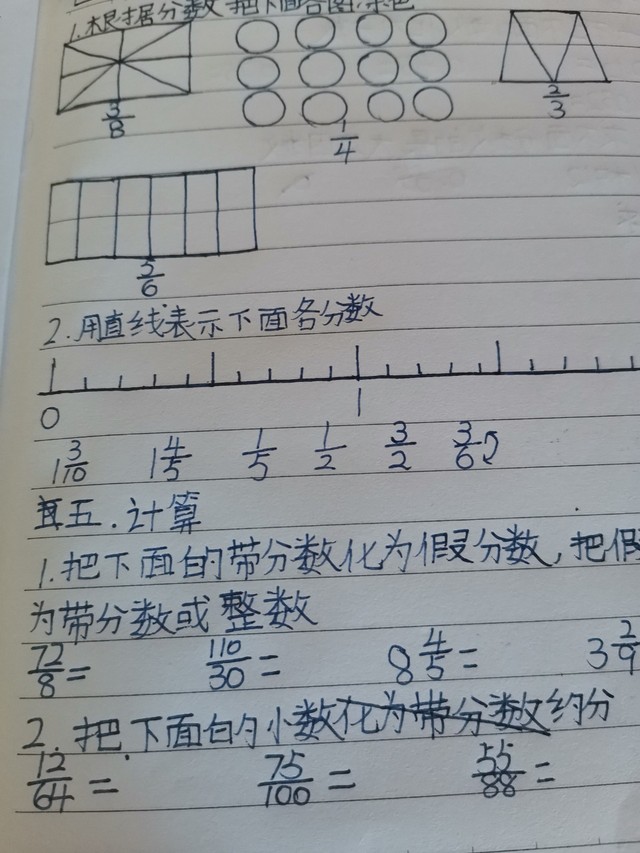 1.根据分数,把下面各图涂色
3/8 1/4 2/3
5/6
2.用直线表示下面各分数
0 1
1 3/10 1 4/5 1/5 1/2 3/2 3/6
五.计算
1.把下面的带分数化为假分数,把假
为带分数或整数
72/8= 110/30= 8 4/5= 3 2/9
2.把下面的小数化为带分数约分
12/64= 75/100= 55/88=